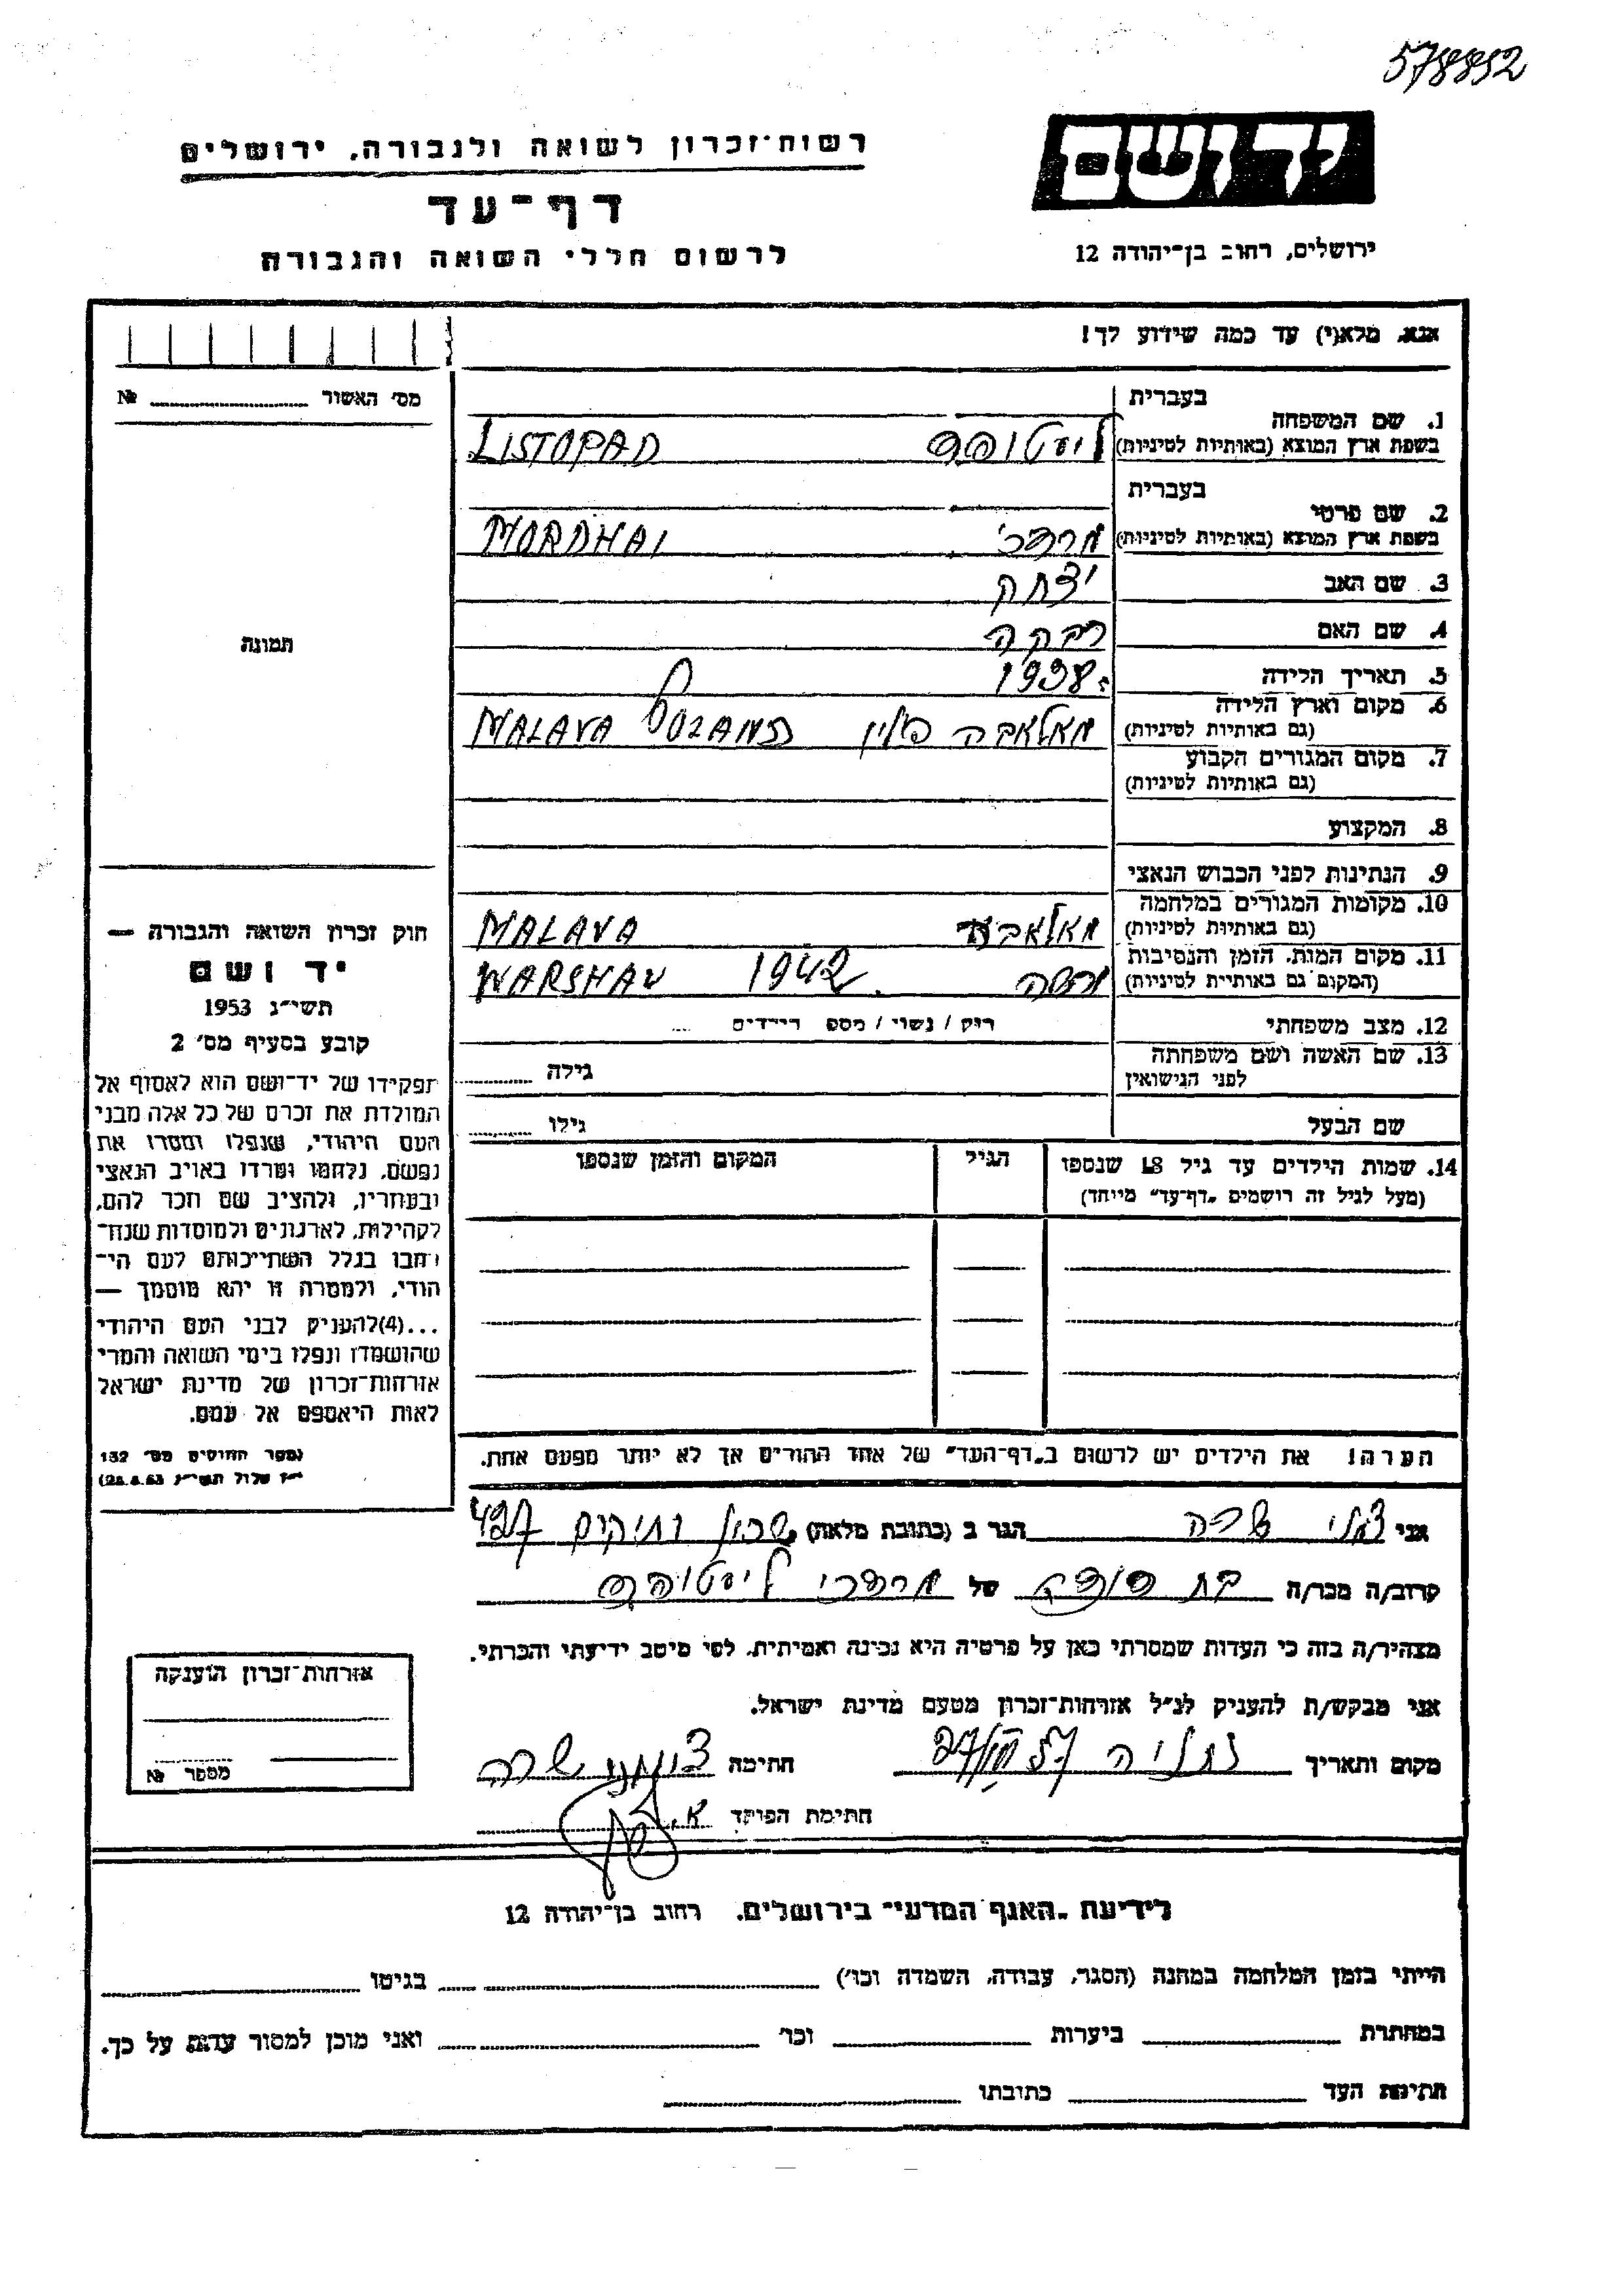 578852
יד ושם
רשות־זכרון לשואה ולגבורה, ירושלים
דף־עד
ירושלים, רחוב בן־יהודה 12
לרשום חללי השואה והגבורה
אנא, מלא(י) עד כמה שידוע לך!
מס׳ האשור № 
1. שם המשפחה בעברית
בשפת ארץ המוצא (באותיות לטיניות) ליסטופד LISTOPAD
2. שם פרטי בעברית
בשפת ארץ המוצא (באותיות לטיניות) מרדכי MORDHAI
3. שם האב יצחק
4. שם האם רבקה
5. תאריך הלידה 1938
6. מקום וארץ הלידה
(גם באותיות לטיניות) מאלאבה פולין MALAVA
7. מקום המגורים הקבוע
(גם באותיות לטיניות)
8. המקצוע
9. הנתינות לפני הכבוש הנאצי
10. מקומות המגורים במלחמה
(גם באותיות לטיניות) MALAVA
11. מקום המות, הזמן והנסיבות
(המקום גם באותיית לטיניות) ורשה 1942 WARSHAV
12. מצב משפחתי רוק / נשוי / מספ הילדים
13. שם האשה ושם משפחתה
לפני הנישואין גילה
שם הבעל גילו
14. שמות הילדים עד גיל 18 שנספו הגיל המקום והזמן שנספו
(מעל לגיל זה רושמים „דף־עד" מייחד)
תמונה
חוק זכרון השואה והגבורה —
יד ושם
תשי״ג 1953
קובע בסעיף מס׳ 2
תפקידו של יד־ושם הוא לאסוף אל
המולדת את זכרם של כל אלה מבני
העם היהודי, שנפלו ומסרו את
נפשם, נלחמו ומרדו באויב הנאצי
ובעוזריו, ולהציב שם וזכר להם,
לקהילות, לארגונים ולמוסדות שנח־
רבו בגלל השתייכותם לעם הי־
הודי, ולמטרה זו יהא מוסמך —
...(4)להעניק לבני העם היהודי
שהושמדו ונפלו בימי השואה והמרי
אזרחות־זכרון של מדינת ישראל
לאות היאספם אל עמם.
(ספר החוקים מס׳ 132
י״ז אלול תשי״ג 28.8.53)
הערה! את הילדים יש לרשום ב„דף־העד" של אחד ההורים אך לא יותר מפעם אחת.
אני שרה הגר ב (כתובת מלאה) שכון ותיקים 427
קרוב/ה מכר/ה בת דודה של מרדכי ליסטופד
מצהיר/ה בזה כי העדות שמסרתי כאן על פרטיה היא נכונה ואמיתית, לפי מיטב ידיעתי והכרתי.
אני מבקש/ת להעניק לנ״ל אזרחות־זכרון מטעם מדינת ישראל.
מקום ותאריך נתניה חתימה שרה
חתימת הפוקד
אזרחות־זכרון הוענקה
מספר №
לידיעת „האגף המדעי" בירושלים, רחוב בן־יהודה 12
הייתי בזמן המלחמה במחנה (הסגר, עבודה, השמדה וכו׳) בגיטו
במחתרת ביערות וכו׳ ואני מוכן למסור עדות על כך.
חתימת העד כתובתו